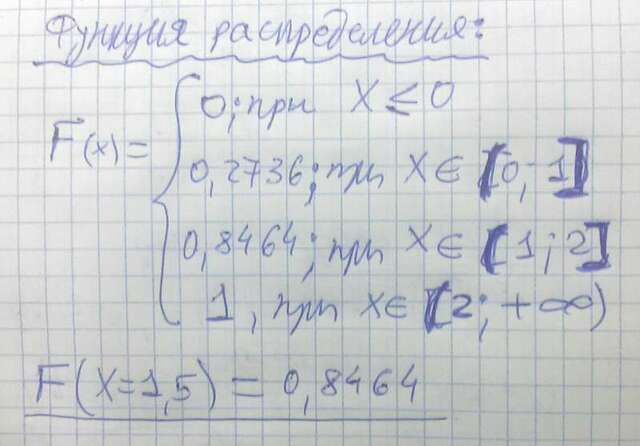 Функция распределения:
F(x) =
0; при X ≤ 0
0,2736; при X ∈ [0; 1]
0,8464; при X ∈ [1; 2]
1, при X ∈ [2; +∞)
F(X=1,5) = 0,8464